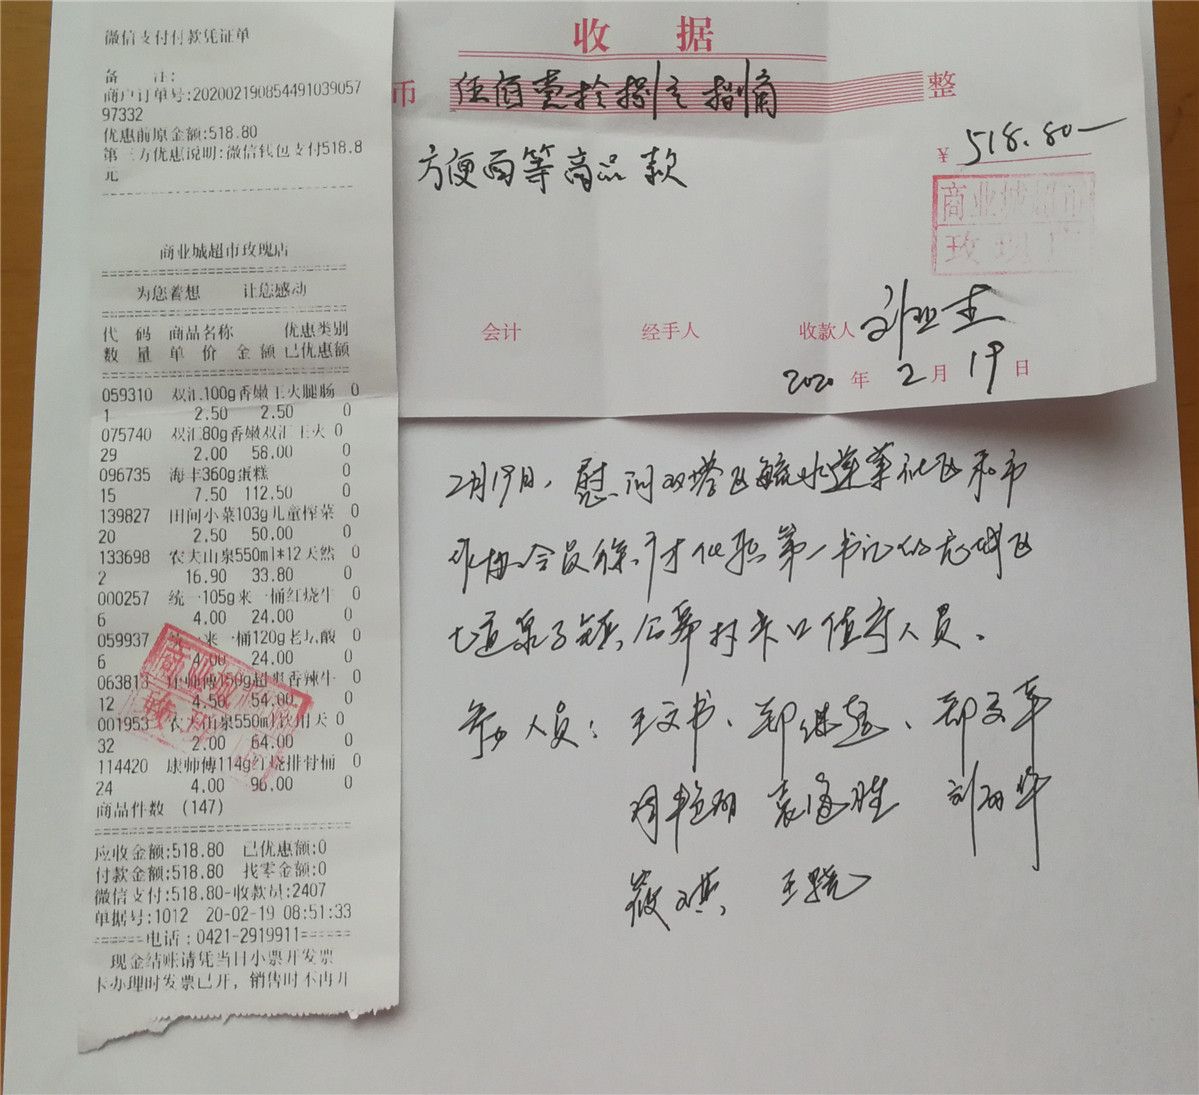 微信支付付款凭证单
备 注:
商户订单号:202002190854491039057
97332
优惠前原金额:518.80
第三方优惠说明:微信钱包支付518.8
元
商业城超市玫瑰店
为您着想 让您感动
代 码 商品名称 优惠类别
数 量 单 价 金 额 已优惠额
059310 双汇100g香嫩王火腿肠 0
1 2.50 2.50 0
075740 双汇80g香嫩双汇王火 0
29 2.00 58.00 0
096735 海丰360g蛋糕 0
15 7.50 112.50 0
139827 田间小菜103g儿童榨菜 0
20 2.50 50.00 0
133698 农夫山泉550ml*12天然 0
2 16.90 33.80 0
000257 统一105g来一桶红烧牛 0
6 4.00 24.00 0
059937 统一来一桶120g老坛酸 0
6 4.00 24.00 0
063813 康师傅150g超爽香辣牛 0
12 4.50 54.00 0
001953 农夫山泉550ml饮用天 0
32 2.00 64.00 0
114420 康师傅114g红烧排骨桶 0
24 4.00 96.00 0
商品件数 (147)
应收金额:518.80 已优惠额:0
付款金额:518.80 找零金额:0
微信支付:518.80-收款员:2407
单据号:1012 20-02-19 08:51:33
电话:0421-2919911
现金结账请凭当日小票开发票
卡办理时发票已开,销售时不再开
收 据
币 伍佰壹拾捌元捌角 整
¥ 518.80
方便面等商品款
商业城超市
玫瑰店
会计 经手人 收款人 刘亚杰
2020 年 2 月 19 日
2月19日,慰问双塔区 社区和市
会员 任职第一书记的龙城区
七道泉子镇 村卡口值守人员。
参加人员:王文书、郑继超、郑文革
周艳丽 袁海胜 刘丽华
王骁